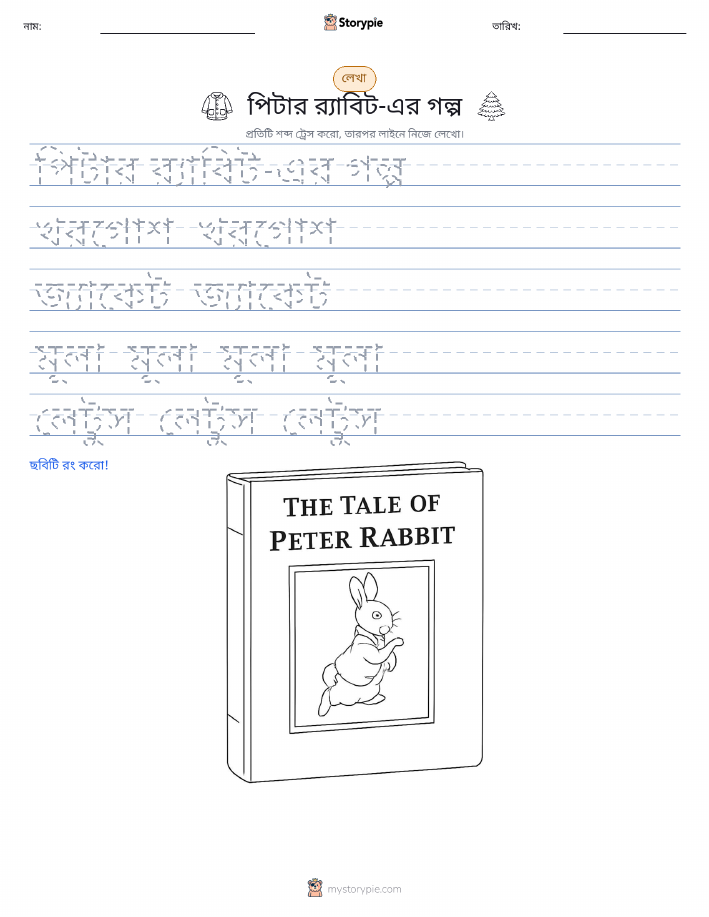 নাম:
Storypie
তারিখ:
লেখা
পিটার র‍্যাবিট-এর গল্প
প্রতিটি শব্দ ট্রেস করো, তারপর লাইনে নিজে লেখো।
পিটার র‍্যাবিট-এর গল্প
খরগোশ খরগোশ
জ্যাকেট জ্যাকেট
মূলা মূলা মূলা মূলা
লেটুস লেটুস লেটুস
ছবিটি রং করো!
THE TALE OF
PETER RABBIT
mystorypie.com